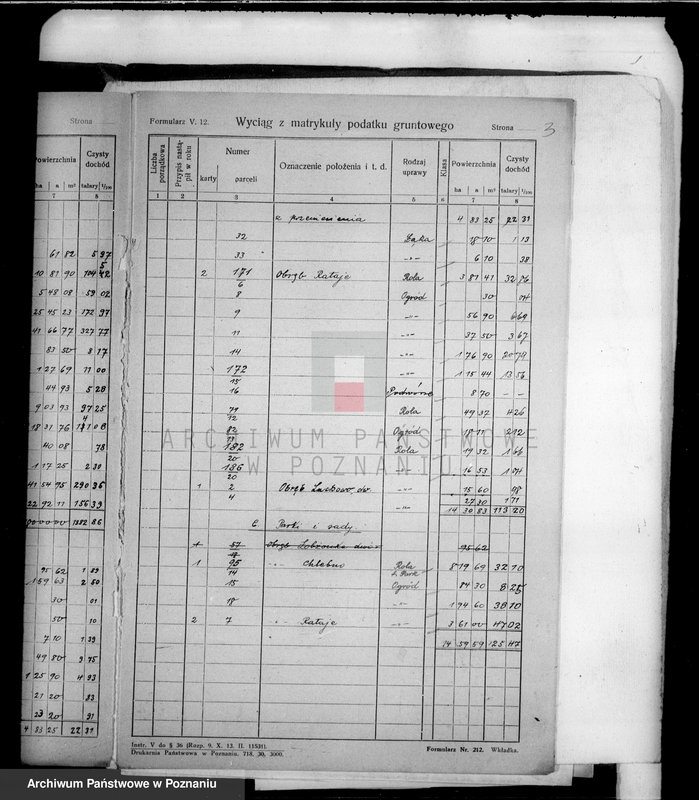 Strona
Powierzchnia
Czysty dochód
ha a m² talary 1/100
7 8
61 82 5 97
10 81 90 104 42
5 48 08 59 02
25 45 23 172 97
41 66 77 327 77
83 50 8 17
1 27 69 11 00
44 93 5 28
9 03 93 97 25
18 31 76
40 08 78
1 17 25 2 30
41 54 95 290 36
22 92 11 156 39
1382 86
95 62 1 89
1 59 63 2 50
30 01
50 10
7 10 1 39
49 80 9 75
1 25 90 4 93
21 20 83
23 20 91
4 83 25 22 31
Formularz V. 12. Wyciąg z matrykuły podatku gruntowego Strona 3
Liczba porządkowa
Przypis nastąpił w roku
Numer
karty parceli
Oznaczenie położenia i t. d.
Rodzaj uprawy
Klasa
Powierzchnia
ha a m²
Czysty dochód
talary 1/100
1 2 3 4 5 6 7 8
z przeniesienia 4 83 25 22 31
32 Łąka 18 10 1 13
33 -"- 6 10 38
2 171/6 Obręb Rataje Rola 3 81 41 32 86
8 Ogród 30 04
9 -"- 56 90 6 69
11 -"- 37 50 3 67
14 -"- 1 76 90 20 79
172/15 -"- 1 15 44 13 56
16 Podwórze 8 70 - -
71/12 Rola 49 37 4 26
82/13 Ogród 18 11 2 12
182/20 Rola 19 32 1 66
186/20 -"- 16 53 1 04
1 2 Obręb dw. -"- 15 60 48
4 -"- 27 30 1 71
14 30 83 113 20
C. Parki i sady.
57/18 95 62
1 95/14 " Chlebno Rola i Park 8 19 69 32 10
15 Ogród 84 30 8 25
18 -"- 1 94 60 38 10
2 7 " Rataje -"- 3 61 00 47 02
14 59 59 125 47
Instr. V do § 36 (Rozp. 9. X. 13. II. 11531).
Drukarnia Państwowa w Poznaniu. 718. 30. 3000.
Formularz Nr. 212. Wkładka.
ARCHIWUM PAŃSTWOWE
W POZNANIU
Archiwum Państwowe w Poznaniu